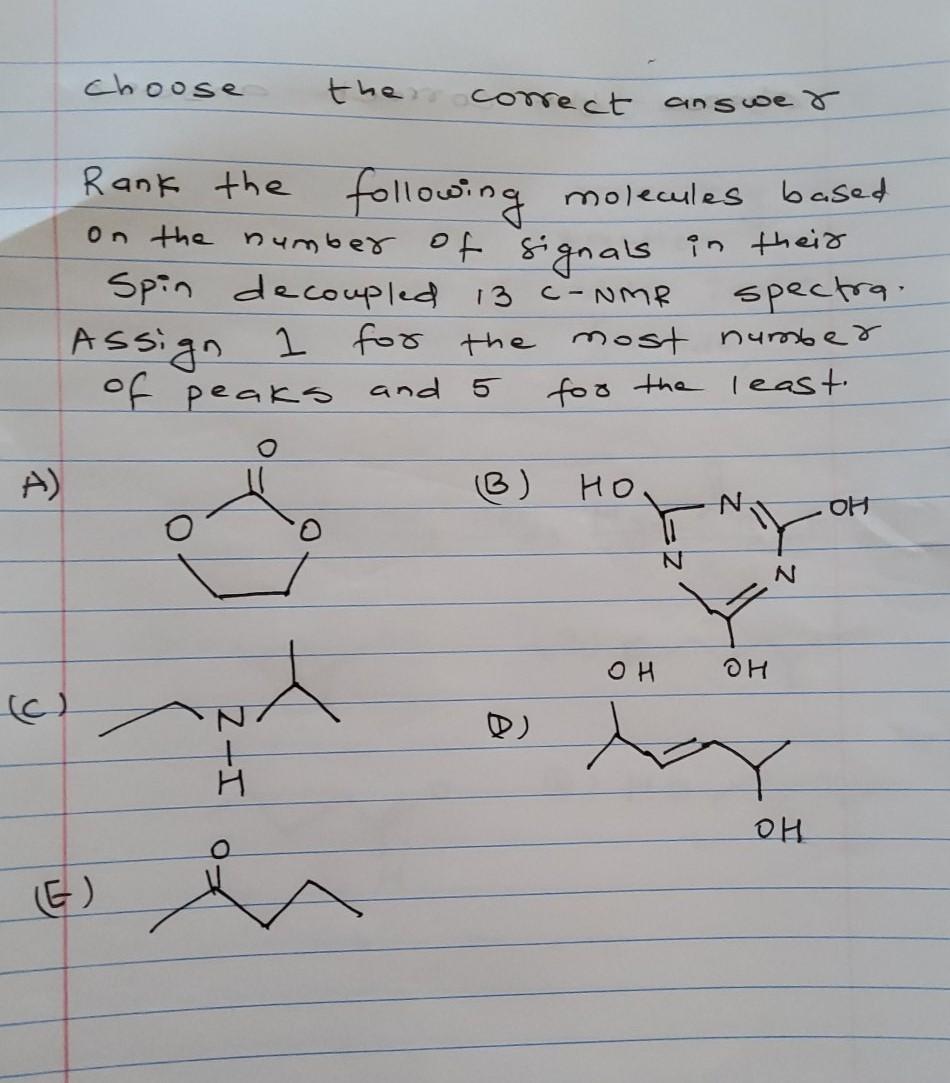 choose the correct answer
Rank the following molecules based
on the number of signals in their
Spin decoupled 13 C-NMR spectra.
Assign 1 for the most number
of peaks and 5 for the least.
A)
O
O O
(B)
HO N OH
N N
OH
(C)
N
H
D)
OH
OH
(E)
O